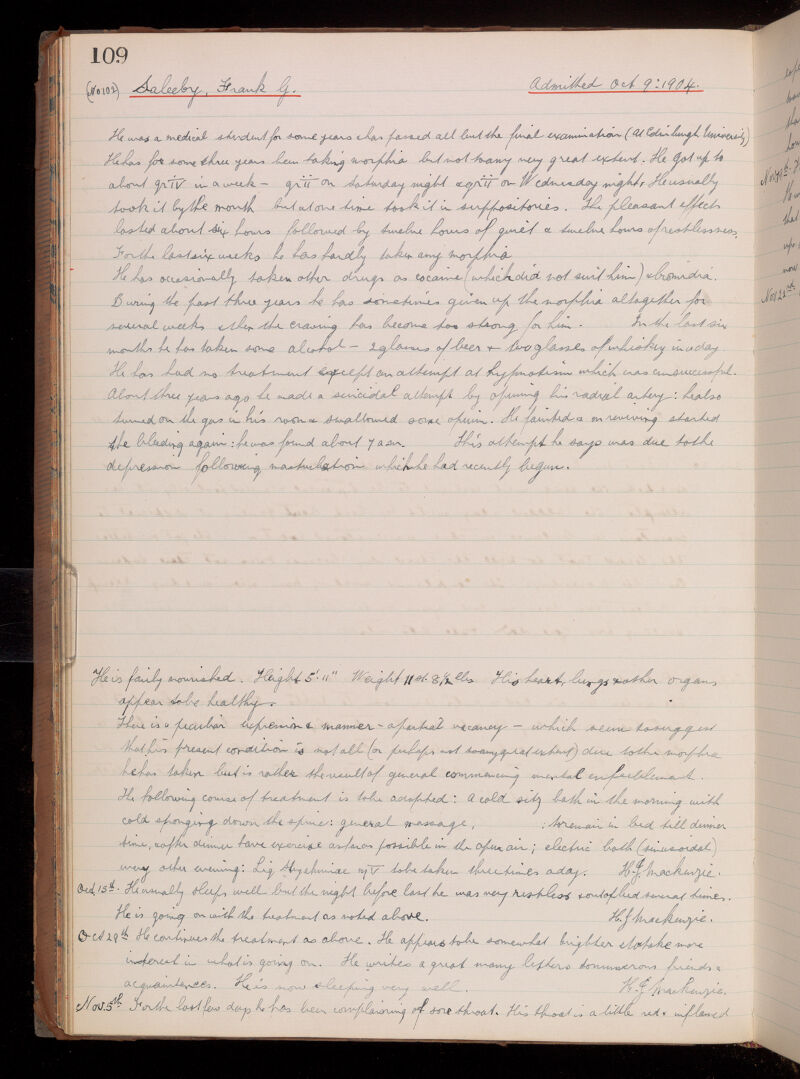 109
(No 102) Saleeby, Frank G. Admitted Oct 9th 1904.
He was a medical student for some years & has passed all but the final examination (At Edinburgh University)
He has for some three years been taking morphia but not to any very great extent. He got up to
about gr IV in a week - gr II on Saturday night & gr II on Wednesday night. He usually
took it by the mouth but at one time took it in suppositories. The pleasant effects
lasted about six hours followed by twelve hours of quiet & twelve hours of restlessness.
For the last six weeks he has hardly taken any morphia
He has occasionally taken other drugs as cocaine (which did not suit him) & bromidia.
During the past three years he has sometimes given up the morphia altogether for
several weeks & then the craving has become too strong for him. In the last six
months he has taken some alcohol - 2 glasses of beer & two glasses of whiskey in a day
He has had no treatment except an attempt at hypnotism which was unsuccessful.
About three years ago he made a suicidal attempt by opening his radial artery: he also
turned on the gas in his room & swallowed some opium. He fainted & on reviving started
the bleeding again: he was found about 7 a.m. This attempt he says was due to the
depression following masturbation which he had recently begun.
He is fairly nourished. Height 5' 11" Weight 11 st. 8½ lbs His heart, lungs & other organs
appear to be healthy.
There is a peculiar expression & manner - a partial vacancy - which seems to suggest
that his present condition is not all (or perhaps not to any great extent) due to the morphia
he has taken but is rather the result of general commencing mental enfeeblement.
The following course of treatment is to be adopted: a cold sitz bath in the morning with
cold sponging down the spine: general massage, : to remain in bed till dinner
time, & after dinner have exercise as far as possible in the open air; electric bath (sinusoidal)
every other evening: Liq. Strychninae m V to be taken three times a day. H.J. Mackenzie.
Oct. 15th. He usually sleeps well but the night before last he was very restless & out of bed several times.
He is going on with the treatment as noted above. H.J. Mackenzie.
Oct 29th He continues the treatment as above. He appears to be somewhat brighter & to take more
interest in what is going on. He writes a great many letters to numerous friends &
acquaintances. He is now sleeping very well. H.J. Mackenzie.
Nov. 5th For the last few days he has been complaining of sore throat. His throat is a little red & inflamed
Nov 22nd